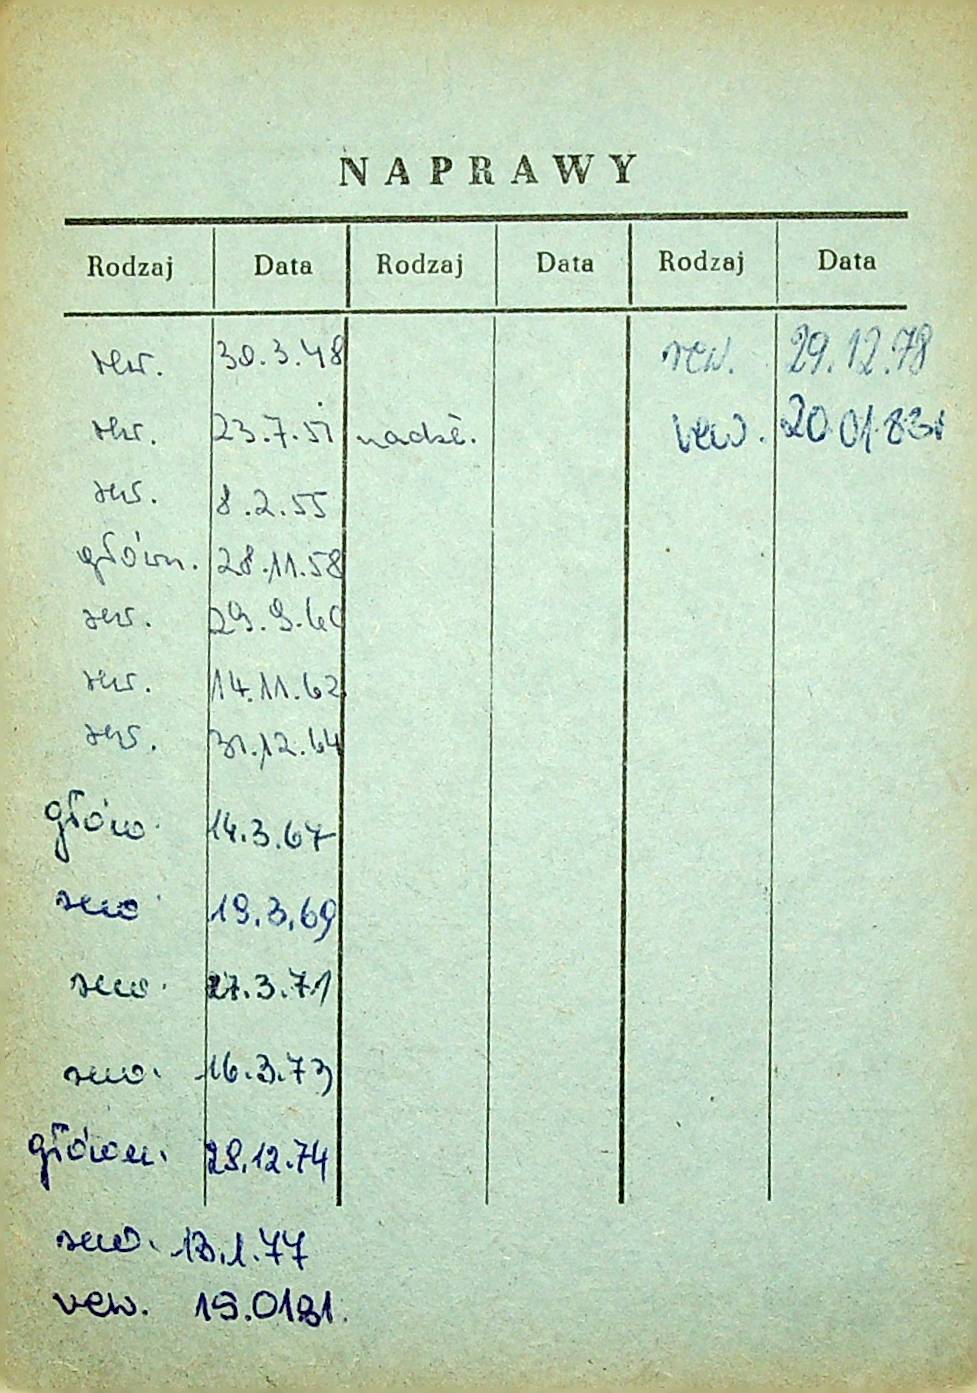 NAPRAWY
Rodzaj Data Rodzaj Data Rodzaj Data
rew. 30.3.48 rew. 29.12.78
rew. 23.7.51 nadzw. rew. 20.01.83r
rew. 8.2.55
główn. 28.11.58
rew. 29.9.60
rew. 14.11.62
rew. 31.12.64
główn. 14.3.67
rew. 19.3.69
rew. 27.3.71
rew. 16.3.73
główn. 28.12.74
rew. 13.1.77
rew. 19.0181.